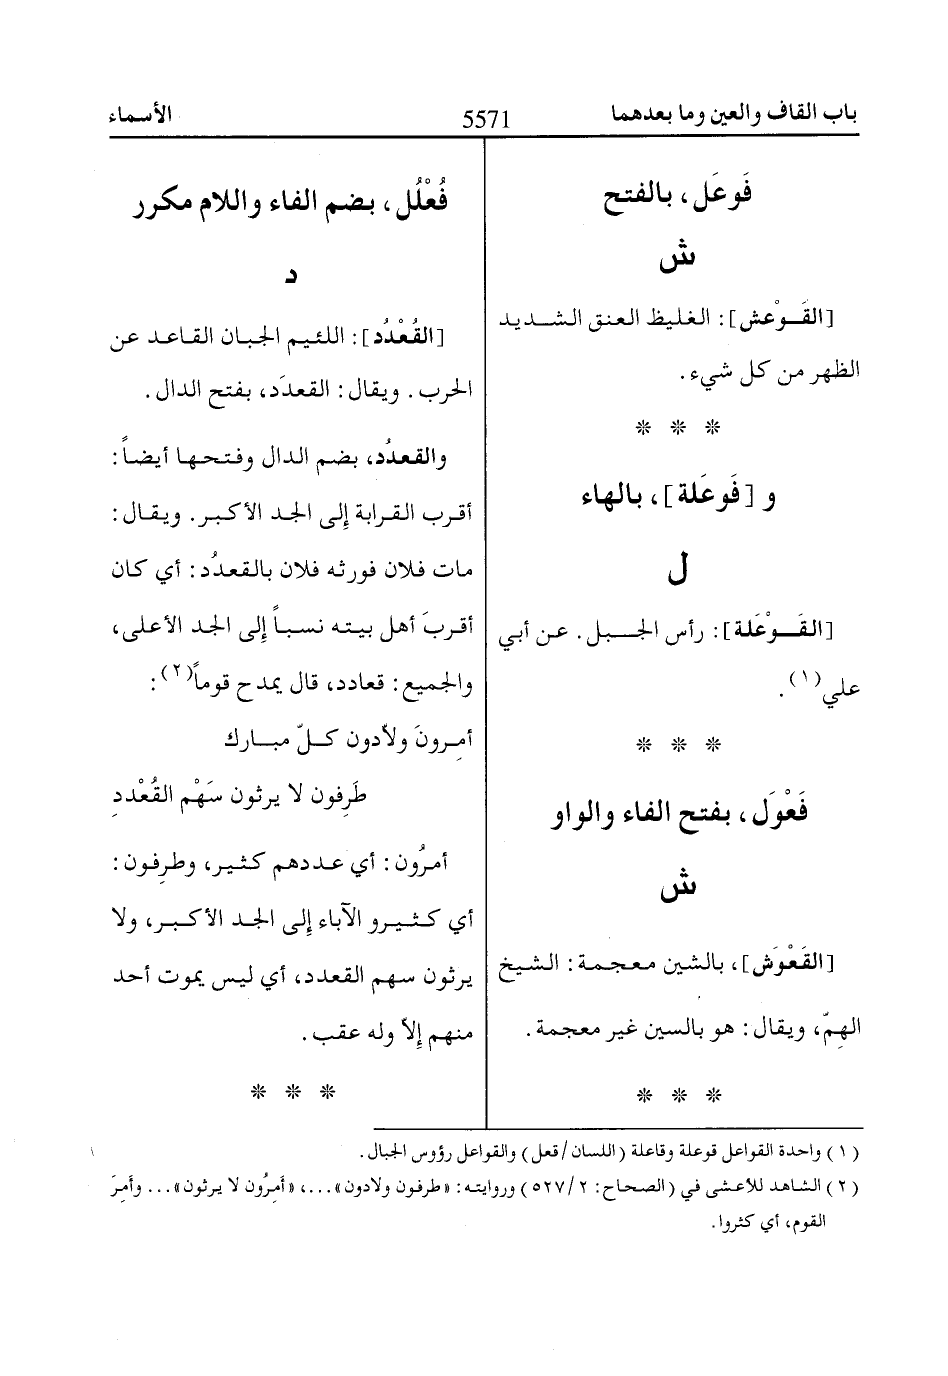 باب القاف والعين وما بعدهما
5571
الأسماء
فَوعَل، بالفتح
ش
[القَـوْعش]: الغليظ العنق الشديد
الظهر من كل شيء.
* * *
و [فَوعَلة]، بالهاء
ل
[القَـوْعَلة]: رأس الجبل. عن أبي
علي(١).
* * *
فَعْوَل، بفتح الفاء والواو
ش
[القَعْوَش]، بالشين معجمة: الشيخ
الهِمّ، ويقال: هو بالسين غير معجمة.
* * *
فُعْلُل، بضم الفاء واللام مكرر
د
[القُعْدُد]: اللئيم الجبان القاعد عن
الحرب. ويقال: القعدَد، بفتح الدال.
والقعدُد، بضم الدال وفتحها أيضاً:
أقرب القرابة إلى الجد الأكبر. ويقال:
مات فلان فورثه فلان بالقعدُد: أي كان
أقربَ أهل بيته نسباً إلى الجد الأعلى،
والجميع: قعادد، قال يمدح قوماً(٢):
أمِرونَ ولاّدون كلّ مبارك
طَرِفون لا يرثون سَهْم القُعْددِ
أمرُون: أي عددهم كثير، وطرِفون:
أي كثيرو الآباء إلى الجد الأكبر، ولا
يرثون سهم القعدد، أي ليس يموت أحد
منهم إلاّ وله عقب.
* * *
(١) واحدة القواعل قوعلة وقاعلة (اللسان/قعل) والقواعل رؤوس الجبال.
(٢) الشاهد للأعشى في (الصحاح: ٥٢٧/٢) وروايته: «طرفون ولادون»...، «أمرُون لا يرثون»... وأمِرَ
القوم، أي كثروا.